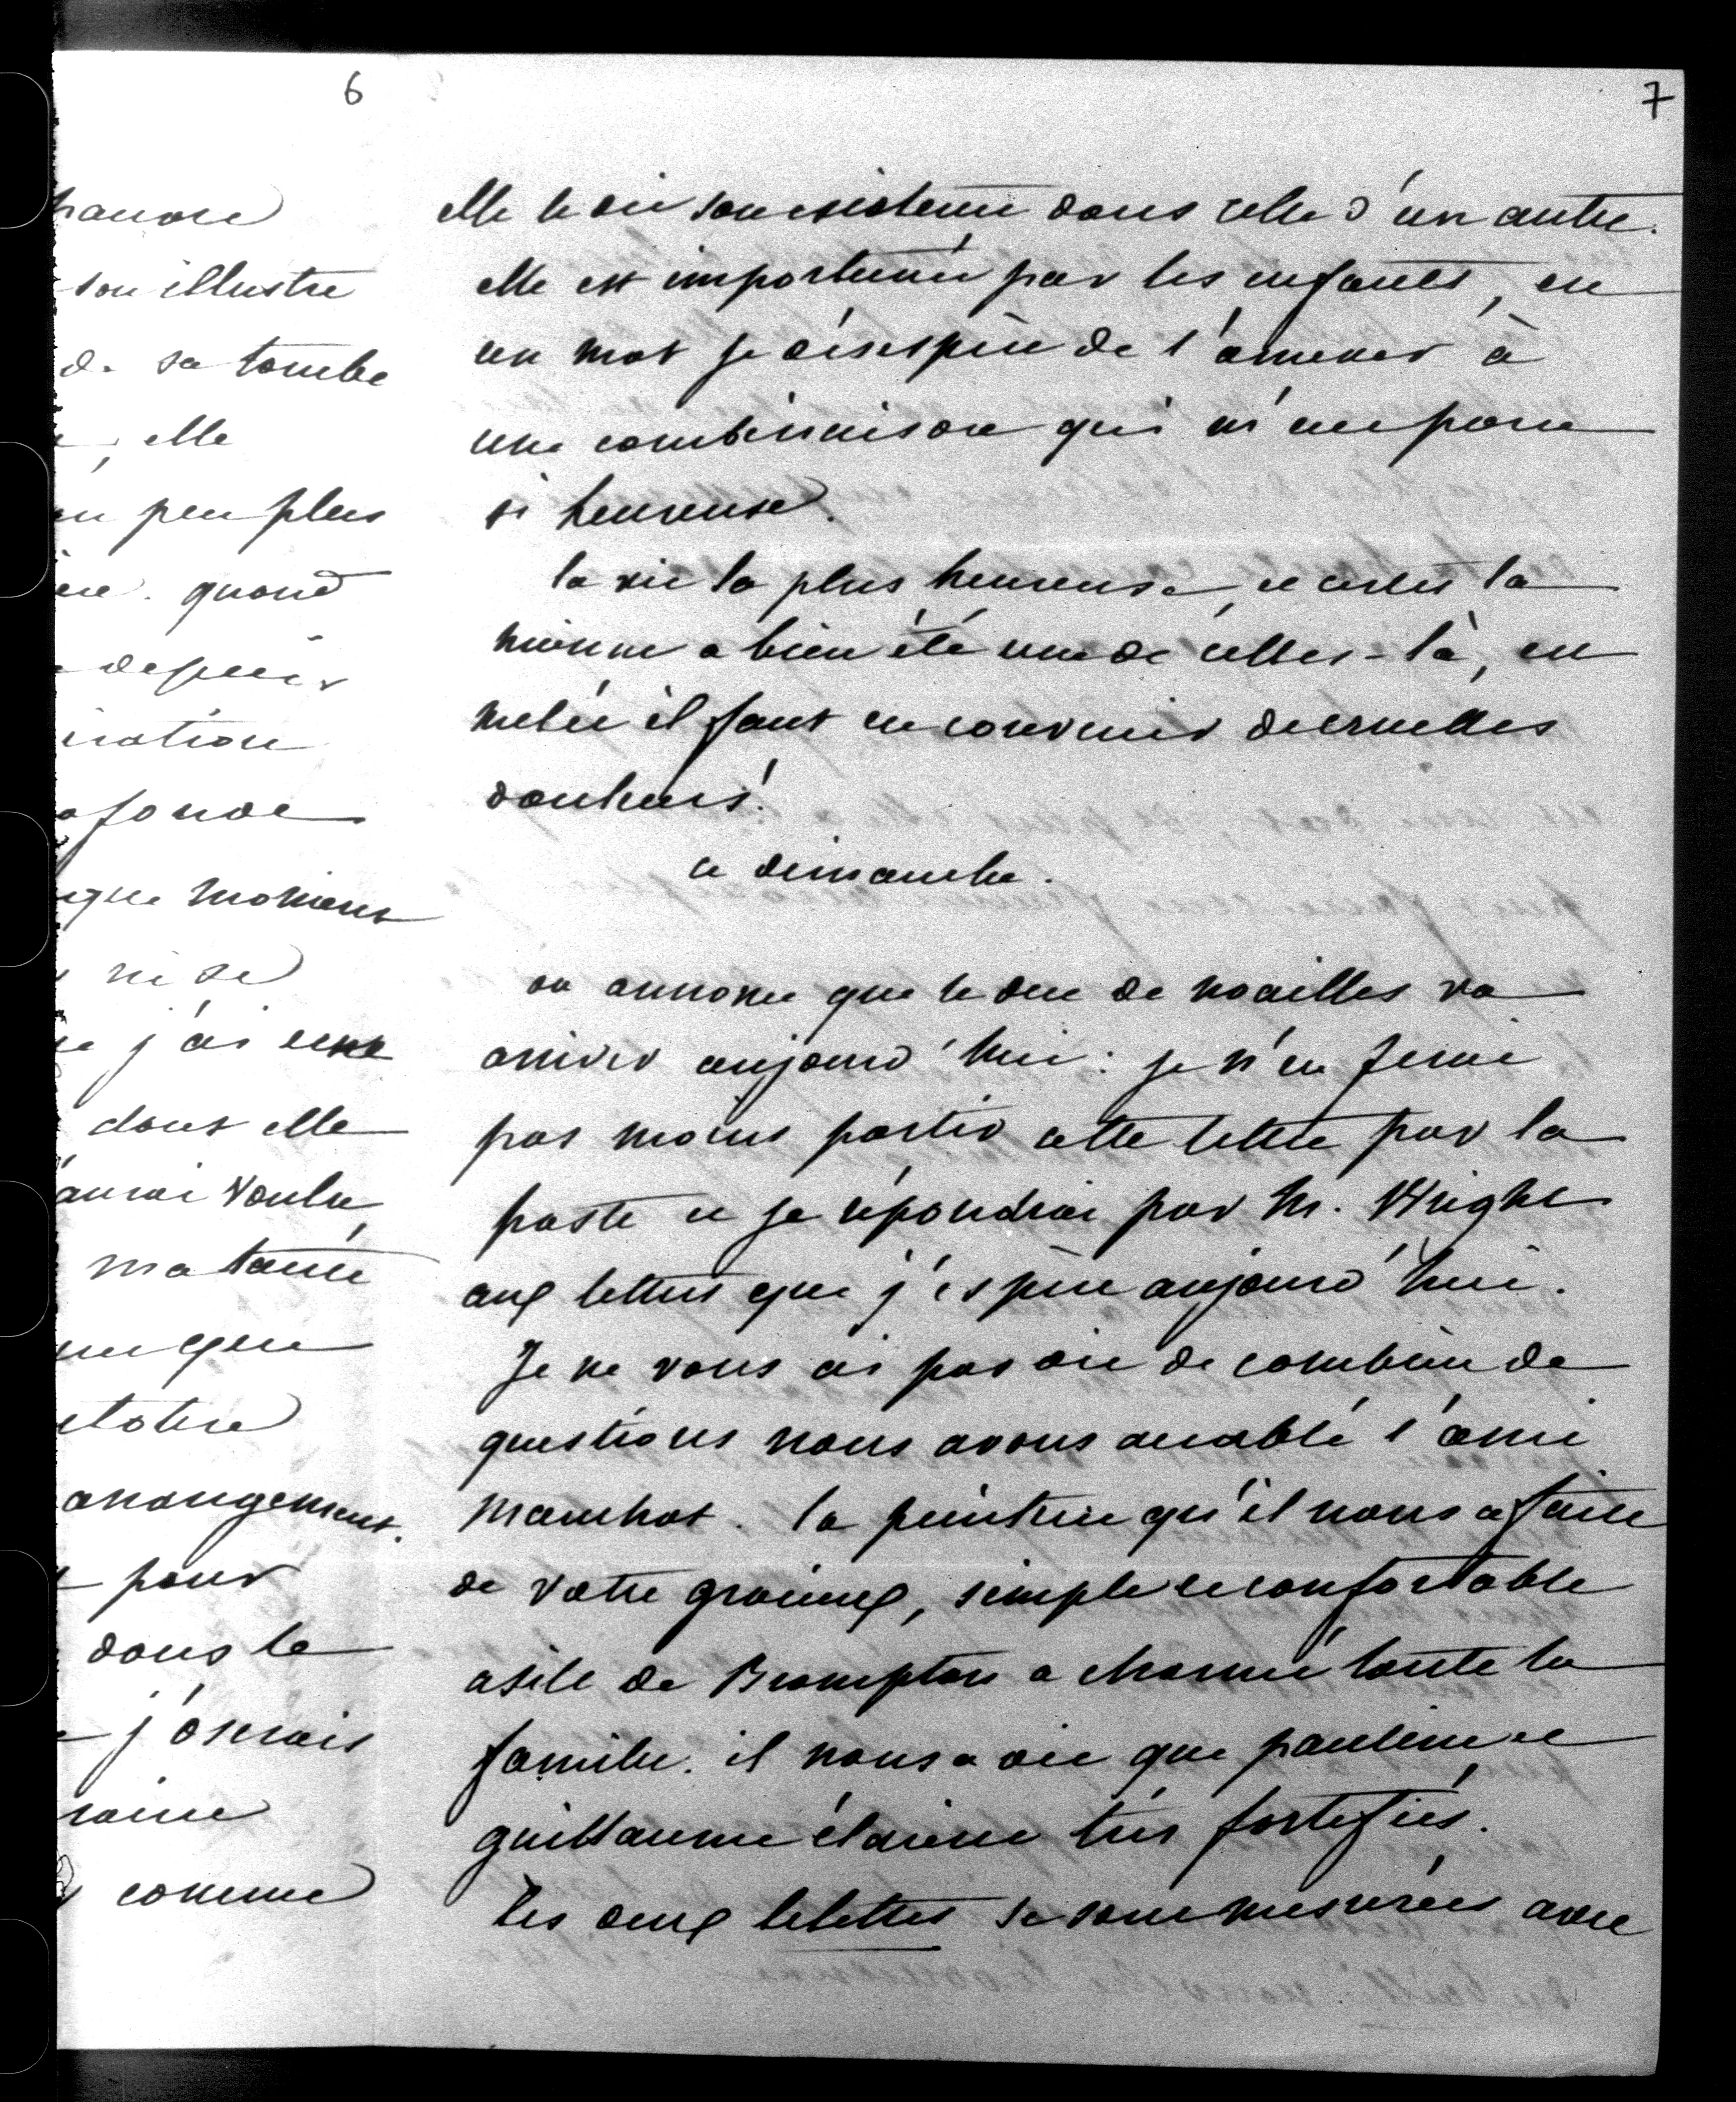 6
hanore
son illustre
de sa tombe
elle
un peu plus
quand
depuis
iration
ofonde
que moment
ni de
j'ai eue
dont elle
aurai voulu
ma tante
que
arrangement.
pour
dans le
j'oserais
raine
comme
7
elle le die son existence dans celle d'un autre.
elle est importunée par les enfants, en
un mot je désespère de l'amener à
une combinaison qui m'eut paru
si heureuse.
la vie la plus heureuse, et certes la
mienne a bien été une de celles-là, en
mêlée il faut en convenir de cruelles
douleurs!
ce dimanche.
on annonce que le duc de noailles va
arriver aujourd'hui: je n'en ferai
pas moins partir cette lettre par la
poste et je répondrai par Mr. Wright
aux lettres que j'espère aujourd'hui.
Je ne vous ai pas dit de combien de
questions nous avons accablé l'ami
Manchot. la peinture qu'il nous a faite
de votre gracieux, simple et confortable
asile de Brompton a charmé toute la
famille. il nous a dit que pauline et
guillaume étaient très fortifiés.
les deux lolottes se sont mesurées avec